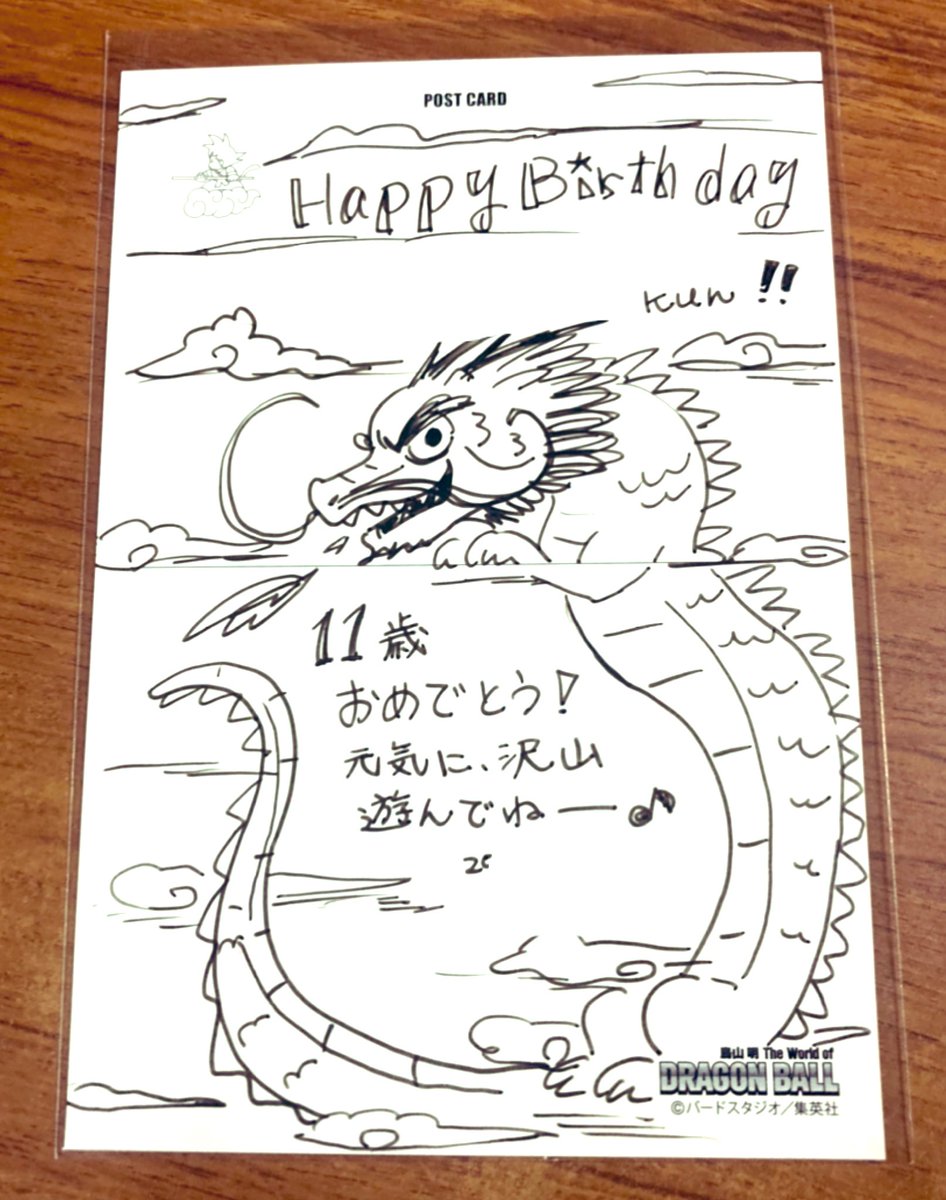 POST CARD
Happy Birthday
Kun !!
11歳
おめでとう!
元気に、沢山
遊んでねー♪
鳥山 明 The World of
DRAGON BALL
©バードスタジオ/集英社